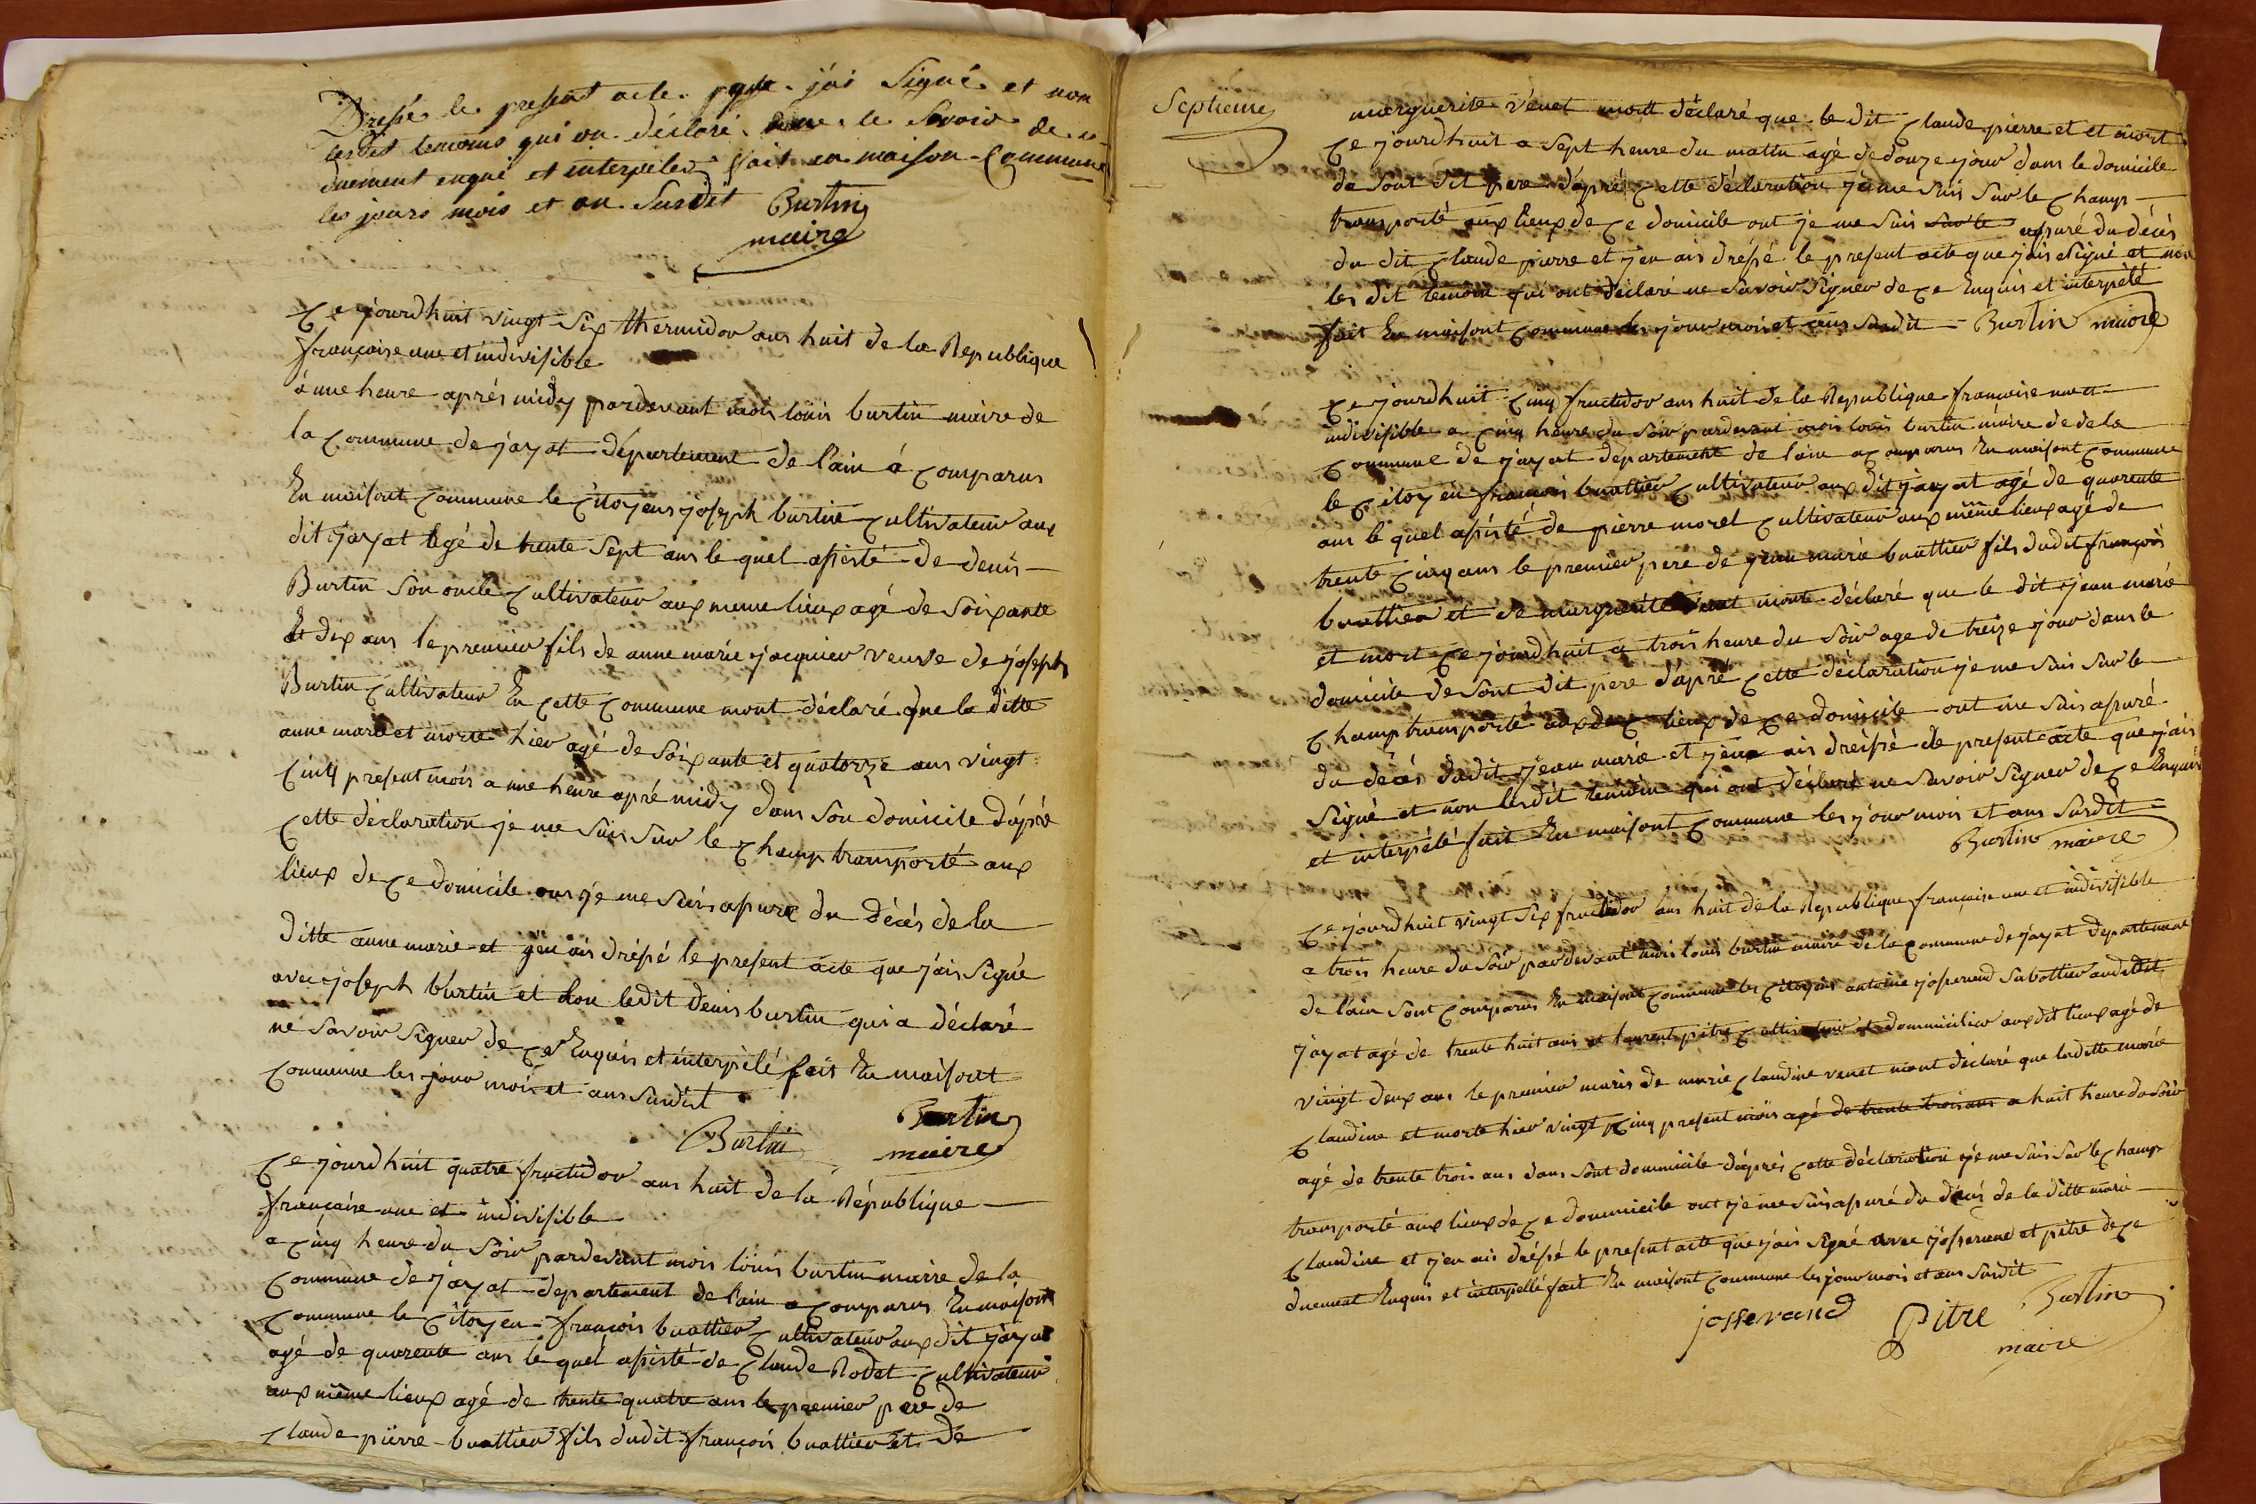 Dressé le present acte que j'ai signé et non
lesdit temoins qui on déclaré ne le savoir de ce
duement enqui et interpelez fait en maison Commune
les jours mois et an susdit Burtin
maire
Ce jourdhuit vingt six thermidor ans huit de la Republique
françaire une et indivisible
à une heure aprés midy pardevant mois louis burtin maire de
la Commune de jayat département de l'ain à Comparus
En maisont Commune le Citoyens joseph burtin Cultivateur aux
dit jayat agé de trente sept ans le quel assisté de denis
Burtin son oncle Cultivateur aux meme lieux agé de soixante
Et dix ans le premier fils de anne marie jacquier veuve de joseph
Burtin Cultivateur En Cette Commune mont déclaré que la ditte
anne marie et morte hier agé de soixante et quatorze ans vingt
Cinq present mois a une heure apré midy dans son domicile d'apré
Cette déclaration je me suis sur le Champ transporté aux
lieux de Ce domicile ous je me suis assuré du décés de la
ditte anne marie et j'en ais dréssé le present acte que j'ais signé
avec joseph burtin et non ledit denis burtin qui a déclaré
ne savoir signer de Ce Enquis et interpélé fait En maisont
Commune les jour mois et ans susdit
Burtin Burtin
maire
Ce jourdhuit quatre fructidor ans huit de la République
françaire une et indivisible
a Cinq heure du soir pardevant mois louis burtin maire de la
Commune de jayat departement de l'ain a Comparus En maisont
Commune le Citoyen françois buattier Cultivateur aux dit jayat
agé de quarente ans le quel assisté de Claude Rodet Cultivateur
aux même lieux agé de trente quatre ans le premier pere de
Claude pierre buattier fils dudit françois buattier et de
Septieme
marguerite venet mont déclaré que le dit Claude pierre et et mort
Ce jourdhuit a sept heure du mattin agé de douze jour dans le domicile
de sont dit pere d'apré Cette déclaration je me suis sur le Champ
transporté aux lieux de Ce domicile ont je me suis sur le assuré du décés
du dit Claude pierre et j'en ais dréssé le present acte que j'ais signé et non
les dit temoin qui ont déclaré ne savoir signer de Ce Enquis et interpélé
fait En maisont Commune les jour mois et ans susdit Burtin maire
Ce jourdhuit Cinq fructidor ans huit de la Republique françaire une et
indivisible a Cinq heure du soir pardevant mois louis burtin maire de de la
Commune de jayat departement de l'ain a Comparus En maisont Commune
le Citoyen françois buattier Cultivateur aux dit jayat agé de quarente
ans le quel assisté de pierre morel Cultivateur aux même lieux agé de
trente Cinq ans le premier pere de jean marie buattier fils dudit françois
buattier et de marguerite venet mont déclaré que le dit jean marie
et mort Ce jourdhuit a trois heure du soir age de treize jour dans le
domicile de sont dit pere d'apré Cette déclaration je me suis sur le
Champ transporté aux lieux de Ce domicile ont me suis assuré
du décés dudit jean marie et j'en ais dréssé le present acte que j'ais
signé et non lesdit temoin qui ont déclaré ne savoir signer de Ce Enquis
et interpélé fait En maisont Commune les jour mois et ans susdit
Burtin maire
Ce jourdhuit vingt six fructidor ans huit de la Republique françaire une et indivisible
a trois heure du soir pardevant mois louis burtin maire de la Commune de jayat departement
de l'ain sont Comparus En maisont Commune les Citoyens antoine josserand sabottier audit
jayat agé de trente huit ans et laurent pitre Cultivateur et dommicilier aux dit lieux agé de
vingt deux ans le premier maris de marie Claudine venet mont déclaré que ladette marie
Claudine et morte hier vingt Cinq present mois agé de trente trois ans a huit heure du soir
agé de trente trois ans dans sont dommicile d'aprés Cette déclaration je me suis sur le Champ
transporté aux lieux de Ce dommicile ont je me suis assuré du décés de la ditte marie
Claudine et j'en ais dréssé le present acte que j'ais signé avec josserand et pitre de Ce
duement Enquis et interpellé fait En maisont Commune les jour mois et ans susdit
josserand Pitre Burtin
maire